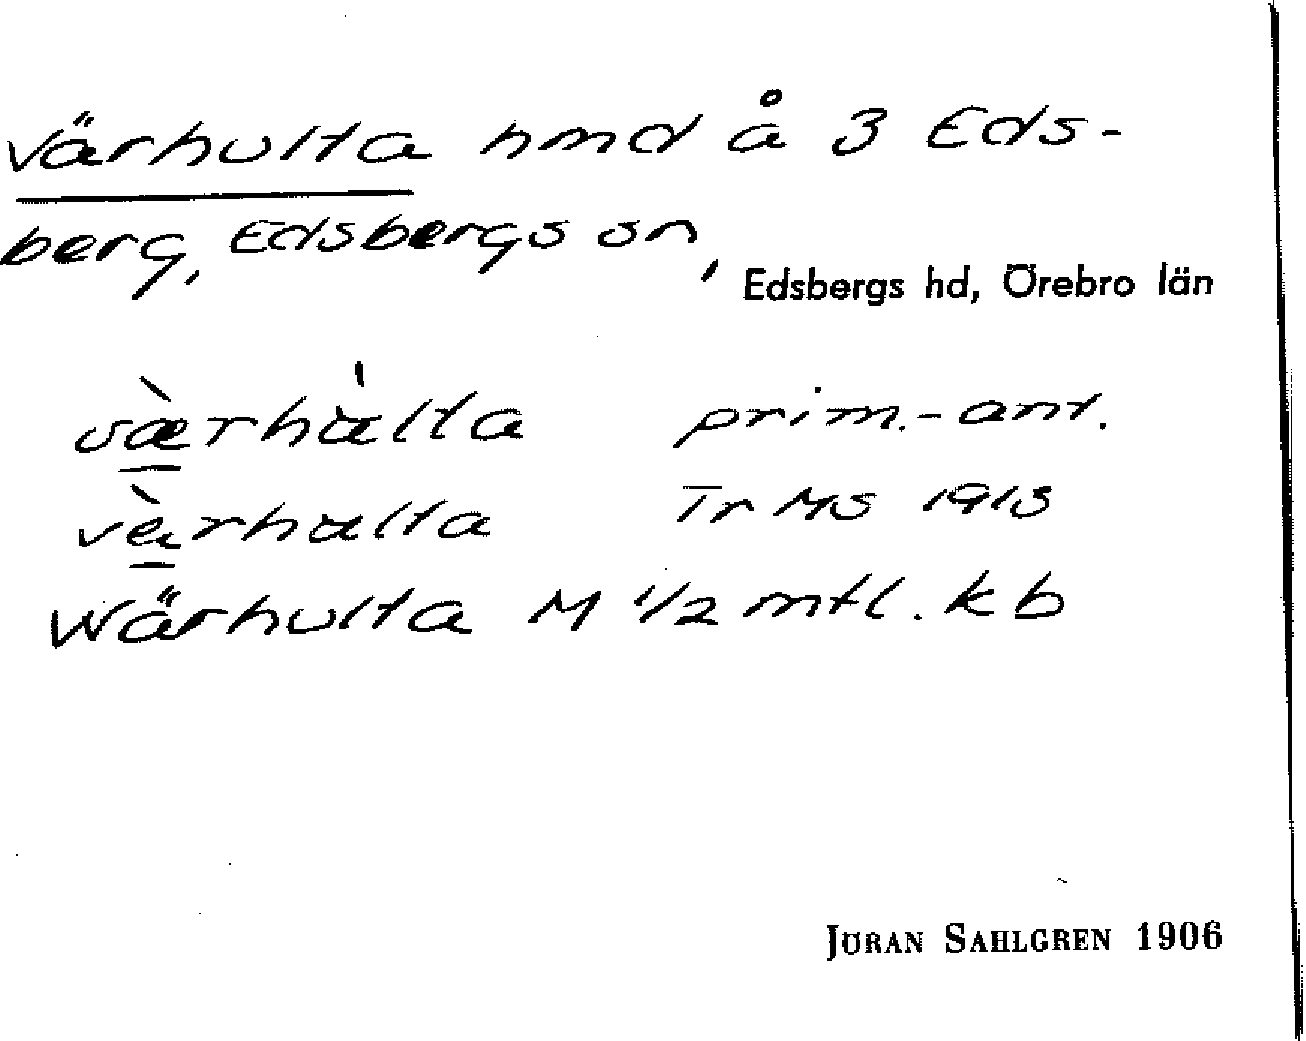 Värhulta hmd å 3 Eds-
berg, Edsbergs sn,
Edsbergs hd, Örebro län
prim.-ant.
Tr MS 1913
Wärhulta M 1/2 mtl. kb
JÖRAN SAHLGREN 1906